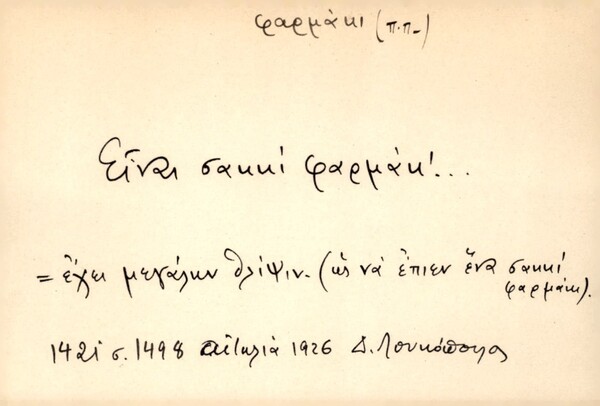 φαρμάκι (π.π.)
Εἶναι σακκί φαρμάκ!...
= ἔχει μεγάλην θλίψιν. (ὡς νά ἔπιεν ἕνα σακκί
φαρμάκι).
1421 σ. 1498 Αἰτωλία 1926 Δ. Λουκόπουλος